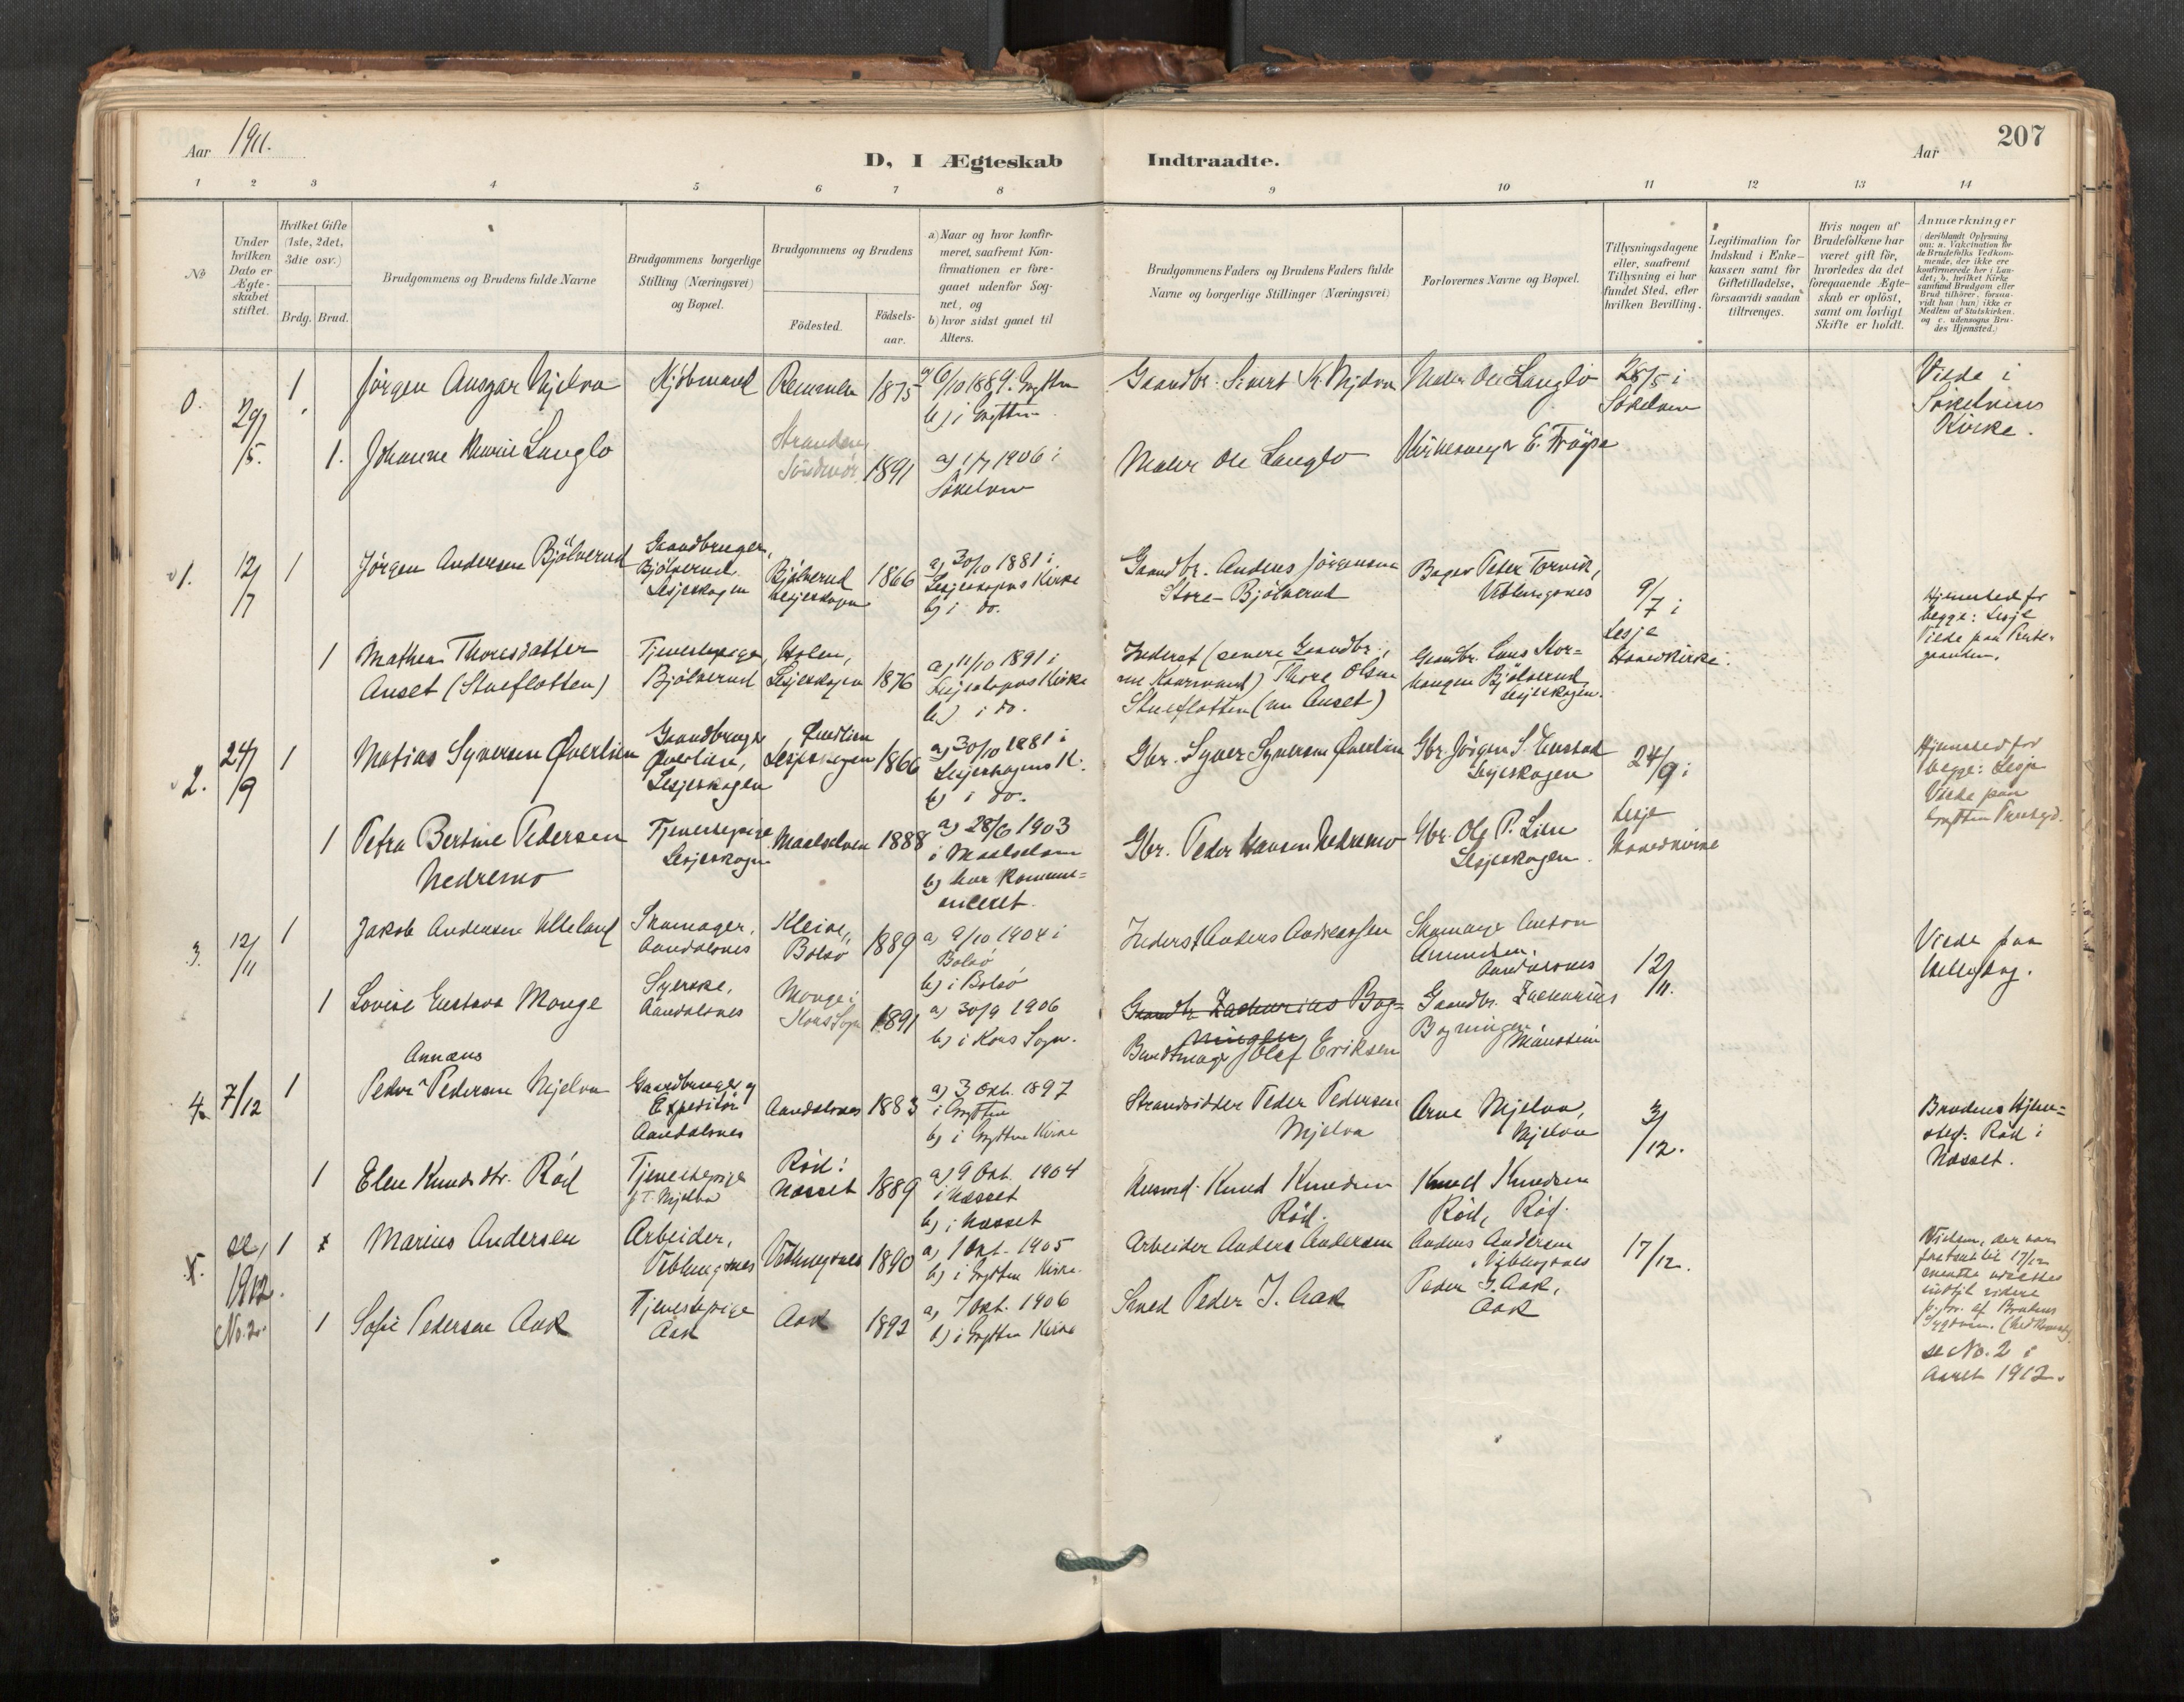 Aar 1911.
D, I Ægteskab Indtraadte.
Aar
207
1 2 3 4 5 6 7 8 9 10 11 12 13 14
No
Under
hvilken
Dato er
Ægte-
skabet
stiftet.
Hvilket Gifte
(1ste, 2det,
3die osv.)
Brdg. Brud.
Brudgommens og Brudens fulde Navne
Brudgommens borgerlige
Stilling (Næringsvei)
og Bopæl.
Brudgommens og Brudens
Födested.
Födsels-
aar.
a) Naar og hvor konfir-
meret, saafremt Kon-
firmationen er fore-
gaaet udenfor Sog-
net, og
b) hvor sidst gaaet til
Alters.
Brudgommens Faders og Brudens Faders fulde
Navne og borgerlige Stillinger (Næringsvei)
Forlovernes Navne og Bopæl.
Tillysningsdagene
eller, saafremt
Tillysning ei har
fundet Sted, efter
hvilken Bevilling.
Legitimation for
Indskud i Enke-
kassen samt for
Giftetilladelse,
forsaavidt saadan
tiltrænges.
Hvis nogen af
Brudefolkene har
været gift för,
hvorledes da det
foregaaende Ægte-
skab er oplöst,
samt om lovligt
Skifte er holdt.
Anmærkninger
(deriblandt Oplysning
om: a. Vakcination for
de Brudefolks Vedkom-
mende, der ikke ere
konfirmerede her i Lan-
det; b. hvilket Kirke
samfund Brudgom eller
Brud tilhörer, forsaa-
vidt han (hun) ikke er
Medlem af Statskirken,
og c. udensogns Bru-
des Hjemsted.)
0.
29/
/5.
1
Jörgen Ansgar Mjelva
Kjöbmand
Remmem
1875
a) 6/10 1889. Grytten
b) i Grytten
Gaardbr. Sivert K. Mjelva
Maler Ole Langlo
28/5 i
Sökelven
Viede i
Sökelvens
Kirke.
1.
Johanne Marie Langlo
Stranden,
Söndmör
1891
a) 1/7 1906 i
Sökelven
Maler Ole Langlo
Kirkesanger E. Fröysa
1.
12/
/7
1
Jörgen Andersen Bjölverud
Gaardbruger,
Bjölverud
Lesjeskogen
Bjölverud
Lesjeskogen
1866
a) 30/10 1881 i
Lesjeskogens Kirke
b) i do.
Gaardbr. Anders Jörgensen
Store-Bjölverud
Bager Peter Torvik,
Veblungsnes
9/
/7 i
Lesje
Hovedkirke.
Hjemsted for
begge: Lesje
Viede paa Preste-
gaarden.
1
Mathea Thoresdatter
Anset (Stueflotten)
Tjenestepige,
Bjölverud
Holen,
Lesjeskogen
1876
a) 11/10 1891 i
Lesjeskogens Kirke
b) i do.
Inderst (senere Gaardbr.,
nu Kaarmand) Thore Olsen
Stueflotten (nu Anset)
Gaardbr. Lars Stor-
haugen Bjölverud,
Lesjeskogen.
2.
24/
/9
1
Matias Syversen Øverlien
Gaardbruger
Øverlien,
Lesjeskogen
Øverlien
Lesjeskogen
1866
a) 30/10 1881 i
Lesjeskogens K.
b) i do.
Gbr. Syver Syversen Øverlien
Gbr. Jörgen S. Enstad
Lesjeskogen
24/9 i
Lesje
Hovedkirke
Hjemsted for
begge: Lesje
Viede paa
Grytten Prestegd.
1
Petra Bertine Pedersen
Nedremo
Tjenestepige
Lesjeskogen
Maalselven
1888
a) 28/6 1903
i Maalselven
b) har kommu-
niceret.
Gbr. Peder Hansen Nedremo
Gbr. Ole P. Lien
Lesjeskogen.
3.
12/
/11
1
Jakob Andersen Ulleland
Skomager,
Aandalsnes
Kleive,
Bolsö
1889
a) 9/10 1904 i
Bolsö
b) i Bolsö
Inderst Anders Andreassen
Skomager Anton
Amundsen,
Aandalsnes
12/
/11.
Viede paa
Helligdag.
1
Lovise Gustava Monge
Syerske,
Aandalsnes
Monge i
Kors Sogn
1891
a) 30/9 1906
b) i Kors Sogn.
Gaardbr. Zacharias Bog-
ningen
Bundtmager Olef Eriksen
Gaardbr. Zacharias
Bogningen
Maanstein
4.
7/12
1
Annæus
Peder Pedersen Mjelva
Gaardbruger og
Expeditör
Aandalsnes
Aandalsnes
1883
a) 3 Okt. 1897
i Grytten
b) i Grytten Kirke
Strandsidder Peder Pedersen
Mjelva
Arne Mjelva,
Mjelva
3/
/12.
Brudens Hjem-
sted: Röd i
Næsset.
1
Elen Knudsdtr. Röd
Tjenestepige
Mjelva
Röd i
Næsset
1889
a) 9 Okt. 1904
i Næsset
b) i Næsset
Husmd. Knud Knudsen
Röd.
Knud Knudsen
Röd, Röd.
5.
se,
1912.
No. 2.
1
Marius Andersen
Arbeider,
Veblungsnes
Veblungsnes
1890
a) 1 Okt. 1905
b) i Grytten Kirke.
Arbeider Anders Andersen
Anders Andersen
Veblungsnes
17/12.
Vielsen, der var
fastsat til 17/12
maatte udsættes
indtil videre
p. gr. af Brudens
Sygdom.
se No. 2 i
Aaret 1912.
1
Sofie Pedersen Aak
Tjenestepige
Aak
Aak
1892
a) 7 Okt. 1906
b) i Grytten Kirke
Smed Peder J. Aak
Peder J. Aak,
Aak